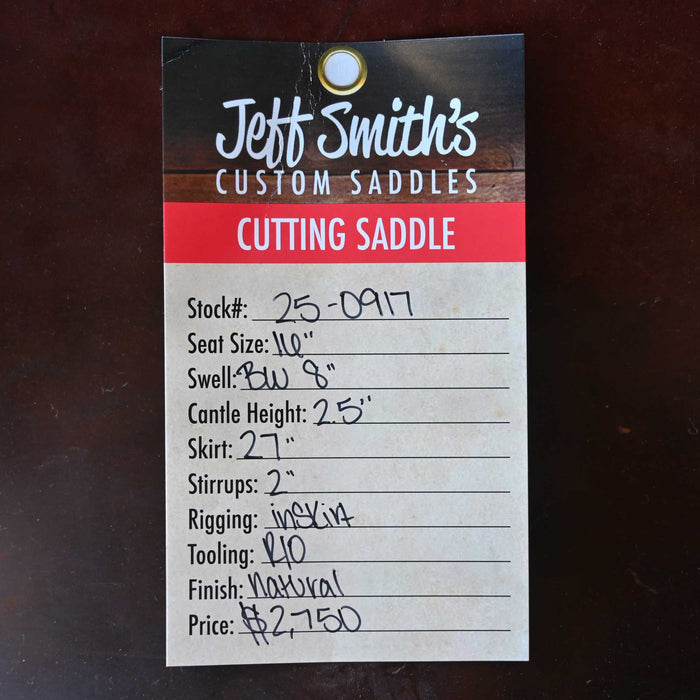 Jeff Smith's
CUSTOM SADDLES
CUTTING SADDLE
Stock#: 25-0917
Seat Size: 16"
Swell: BW 8"
Cantle Height: 2.5"
Skirt: 27"
Stirrups: 2"
Rigging: inskirt
Tooling: RIO
Finish: Natural
Price: $2,750